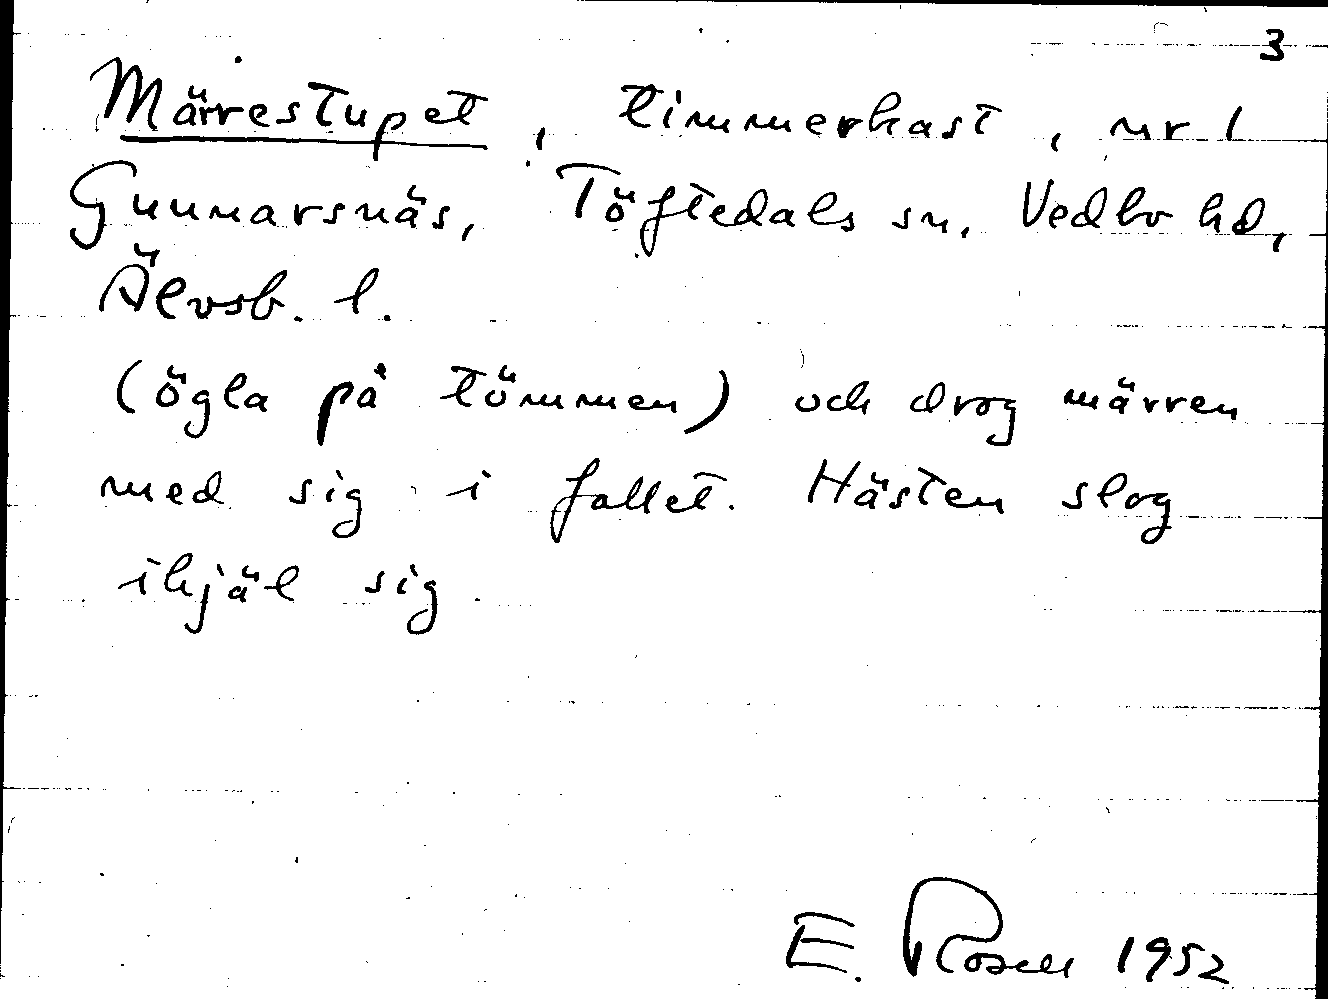 3
Märrestupet, timmerkast, nr 1
Gunnarsnäs, Töftedals sn. Vedbo hd,
Älvsb. l.
(ögla på tömmen) och drog märren
med sig i fallet. Hästen slog
ihjäl sig.
E. Rosell 1952